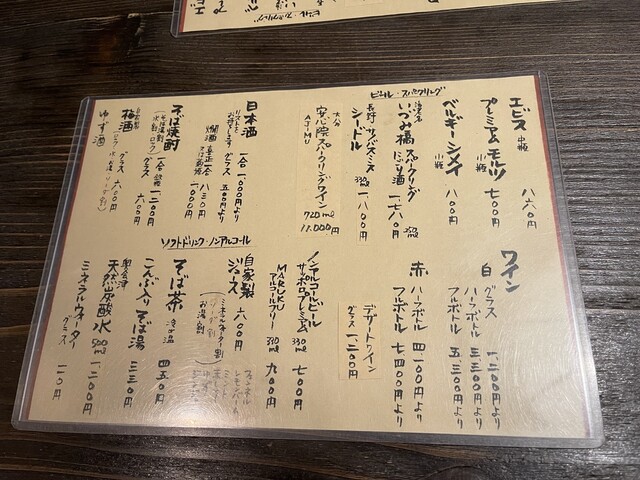 ビール・スパークリング
エビス 中瓶 八六〇円
プレミアムモルツ 小瓶 七〇〇円
ベルギー・シメイ 小瓶 八〇〇円
会津 いづみ橋 スパークリング にごり酒 250ml 一、七八〇円
長野・サンバスミス シードル 330ml 一、八〇〇円
大分
安心院スパークリングワイン
AJIMU
720ml
11,000円
日本酒
リストを
お持ちします
一合 一、〇〇〇円より
グラス 五〇〇円より
燗酒
八三〇円
そば焼酎
一合 一、二〇〇円
グラス 六〇〇円
自家製
梅酒
グラス 六〇〇円
ゆず酒
ワイン
白 グラス 一、二〇〇円より
ハーフボトル 三、三〇〇円より
フルボトル 五、三〇〇円より
赤 ハーフボトル 四、一〇〇円より
フルボトル 七、四〇〇円より
デザートワイン
グラス 一、二〇〇円
ソフトドリンク・ノンアルコール
ノンアルコールビール
サッポロプレミアム 330ml 七〇〇円
アルコールフリー 330ml 九〇〇円
自家製
ジュース 六〇〇円
ミネラルウォーター割
ソーダ割
お湯割
そば茶 四五〇円
こんぶ入りそば湯 三三〇円
奥会津
天然炭酸水 500ml 一、二〇〇円
ミネラルウォーター
グラス 一〇円